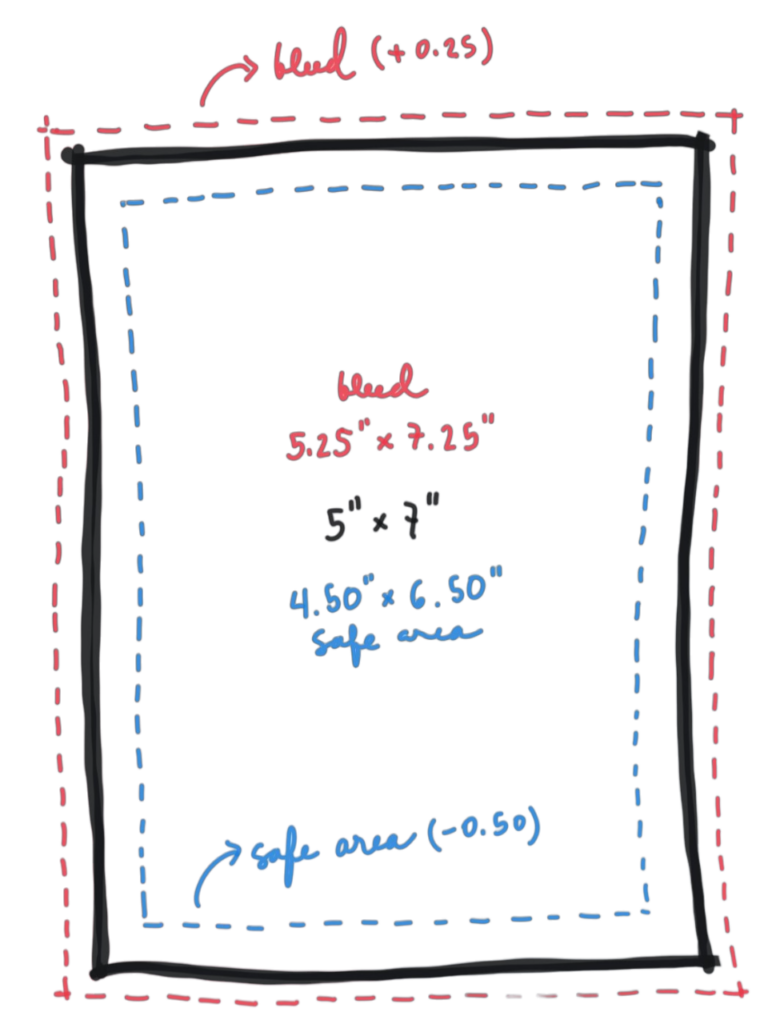 bleed (+0.25)
bleed
5.25" x 7.25"
5" x 7"
4.50" x 6.50"
safe area
safe area (-0.50)